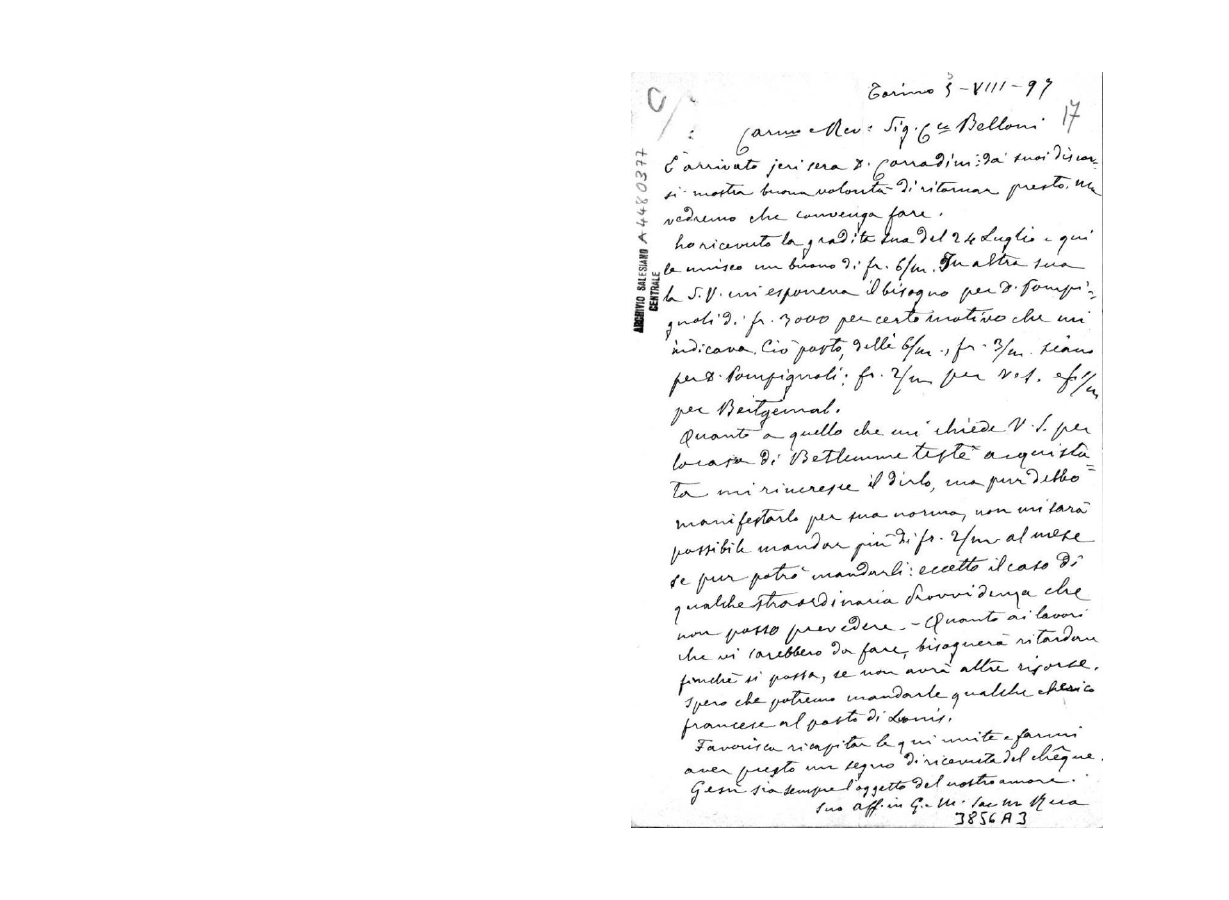 Torino 5-VIII-97
17
Car.mo e Rev: Sig. C.co Belloni
È arrivato jeri sera D. Corradini: da' suoi discor-
si mostra buona volontà di ritornar presto. Ma
vedremo che convenga fare.
ho ricevuto la gradita sua del 24 Luglio e qui
le unisco un buono di fr. 6/m. In altra sua
la S.V. mi esponeva il bisogno per D. Pompi-
gnoli di fr. 3000 per certo motivo che mi
indicava. Ciò posto, delle 6/m., fr. 3/m. siano
per D. Pompignoli; fr. 2/m per V.S. e f. 1/m
per Beitgemal.
Quanto a quello che mi chiede V.S. per
la casa di Betlemme testè acquista=
ta mi rincresce il dirlo, ma pur debbo
manifestarlo per sua norma, non mi sarà
possibile mandar più di fr. 2/m al mese
se pur potrò mandarli: eccetto il caso di
qualche straordinaria Provvidenza che
non posso prevedere. - Quanto ai lavori
che vi sarebbero da fare, bisognerà ritardare
finchè si possa, se non avrà altre risorse.
Spero che potremo mandarle qualche chierico
francese al posto di Louis.
Favorisca ricapitar le qui unite e farmi
aver presto un segno di ricevuta del chêque.
Gesù sia sempre l'oggetto del nostro amore.
Suo aff. in G. e M. Sac M Rua
3856 A 3
ARCHIVIO SALESIANO
CENTRALE
A4480377